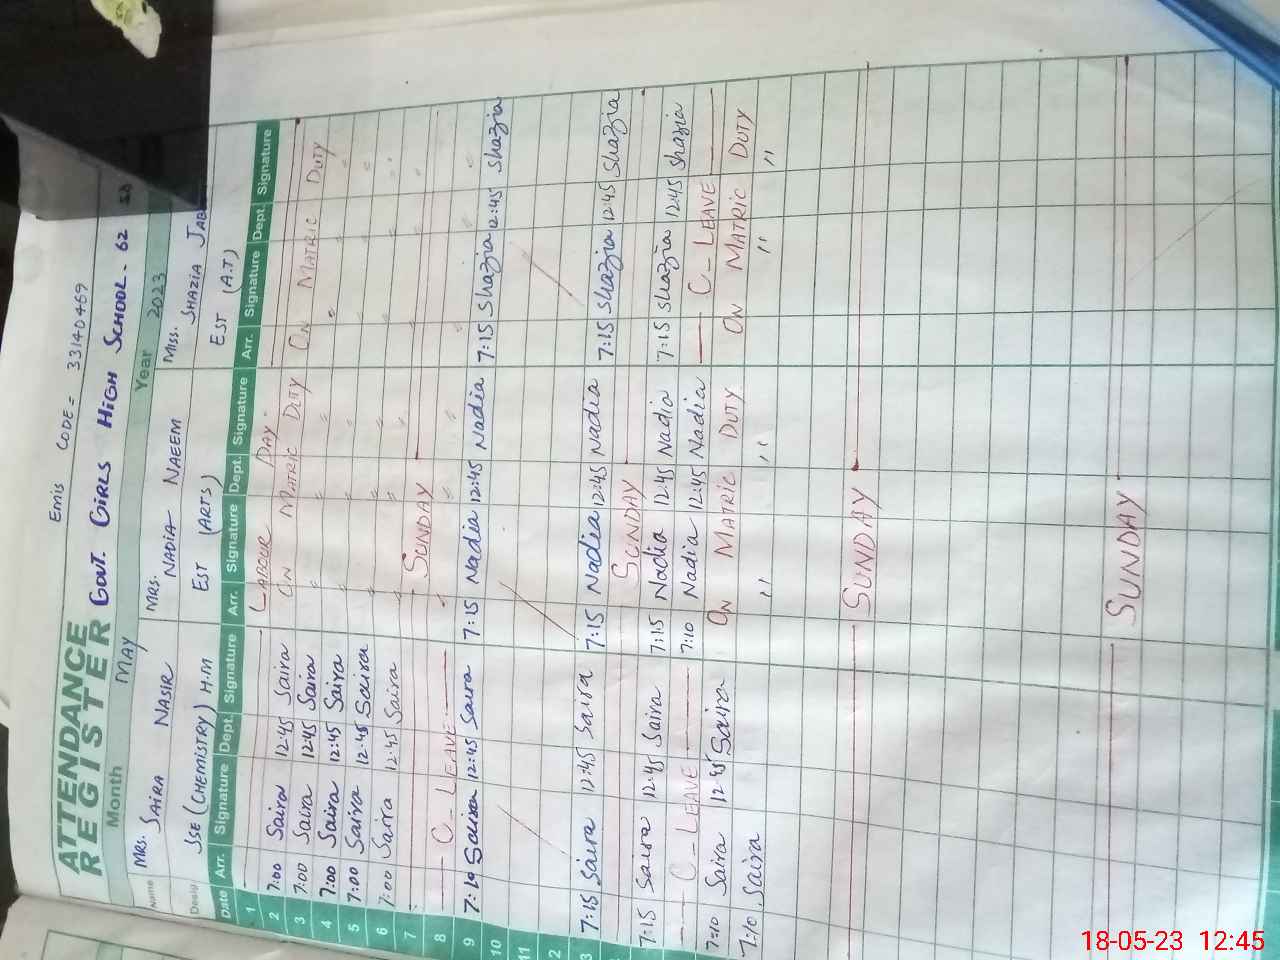 Emis CODE = 33140469
ATTENDANCE
REGISTER GOVT. GIRLS HIGH SCHOOL - 62
Month MAY Year 2023
Name MRS. SAIRA NASIR MRS. NADIA NAEEM MISS. SHAZIA
Desig. SSE (CHEMISTRY) H.M EST (ARTS) EST (A.T)
Date Arr. Signature Dept. Signature Arr. Signature Dept. Signature Arr. Signature Dept. Signature
1 LABOUR DAY
2 7:00 Saira 12:45 Saira ON MATRIC DUTY ON MATRIC DUTY
3 7:00 Saira 12:45 Saira " " " " " "
4 7:00 Saira 12:45 Saira " " " " " "
5 7:00 Saira 12:45 Saira " " " " " "
6 7:00 Saira 12:45 Saira " " " " " "
7 SUNDAY
8 C - LEAVE " " " "
9 7:10 Saira 12:45 Saira 7:15 Nadia 12:45 Nadia 7:15 Shazia 12:45 Shazia
10
11
12
13 7:15 Saira 12:45 Saira 7:15 Nadia 12:45 Nadia 7:15 Shazia 12:45 Shazia
SUNDAY
7:15 Saira 12:45 Saira 7:15 Nadia 12:45 Nadia 7:15 Shazia 12:45 Shazia
C - LEAVE 7:10 Nadia 12:45 Nadia C - LEAVE
7:10 Saira 12:45 Saira ON MATRIC DUTY ON MATRIC DUTY
7:10 Saira " " " "
SUNDAY
SUNDAY
18-05-23 12:45